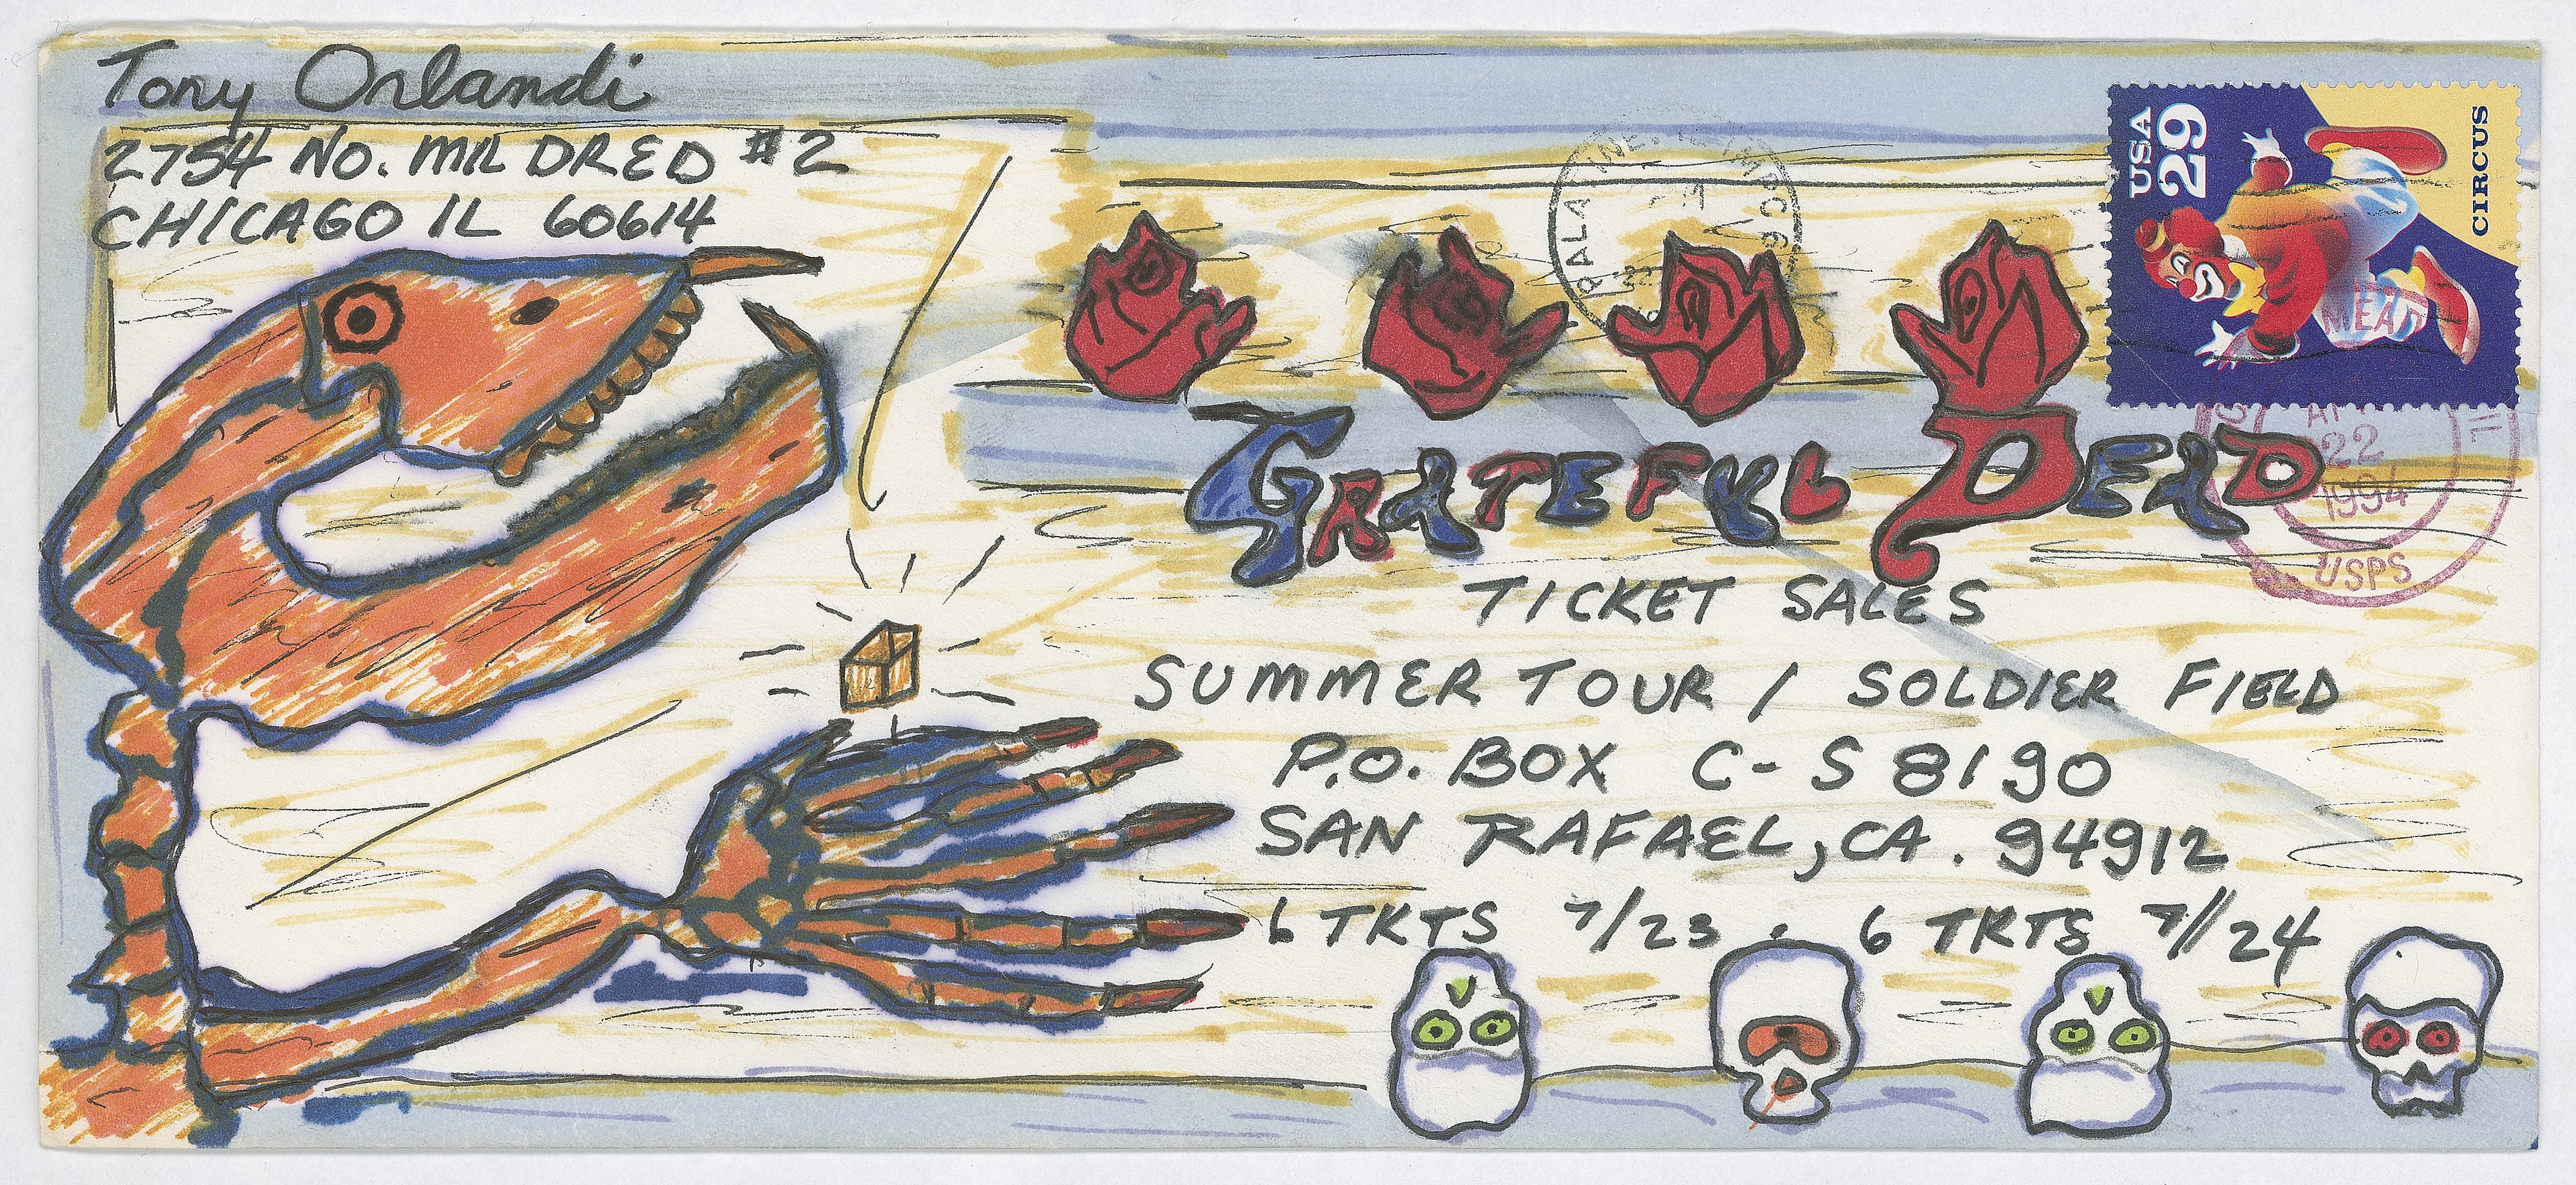 Tony Orlandi
2754 NO. MILDRED #2
CHICAGO IL 60614
USA
29
CIRCUS
GRATEFUL DEAD
TICKET SALES
SUMMER TOUR / SOLDIER FIELD
P.O. BOX C-S 8190
SAN RAFAEL, CA. 94912
6 TKTS 7/23 . 6 TKTS 7/24
22
1994
USPS